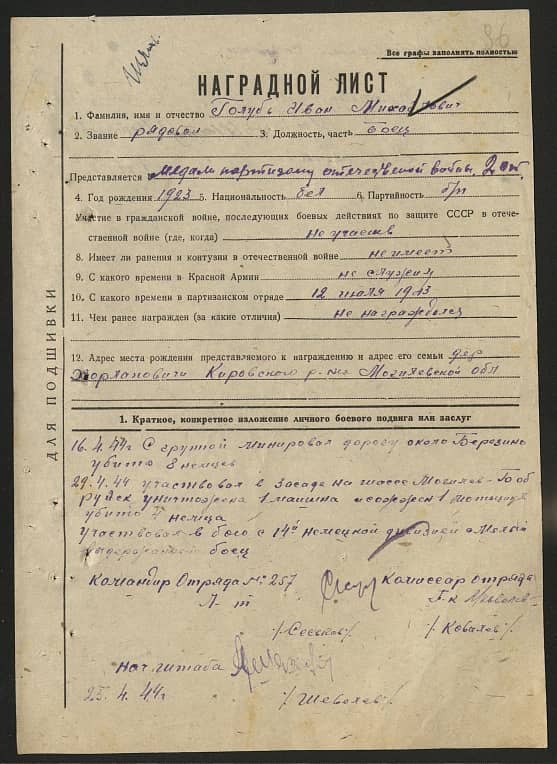 96
Все графы заполнять полностью
НАГРАДНОЙ ЛИСТ
1. Фамилия, имя и отчество Голубь Иван Михайлович
2. Звание рядовой 3. Должность, часть Боец
Представляется Медали партизану отечественной войны 2 ст.
4. Год рождения 1923 5. Национальность бел 6. Партийность б/п
7. Участие в гражданской войне, последующих боевых действиях по защите СССР в отече-
ственной войне (где, когда) не участв
8. Имеет ли ранения и контузии в отечественной войне не имеет
9. С какого времени в Красной Армии не служил
10. С какого времени в партизанском отряде 12 июля 1943
11. Чем ранее награжден (за какие отличия) не награждался
12. Адрес места рождения представляемого к награждению и адрес его семьи дер
Кировского р-на Могилевской обл
1. Краткое, конкретное изложение личного боевого подвига или заслуг
16.4.44г С группой минировал дорогу около Березино
убито 8 немцев
29.4.44 участвовал в засаде на шоссе Могилев-Боб
руйск уничтожена 1 машина и сожжен 1 мотоцикл
убито немца
участвовал в бою с 14й немецкой дивизией
выдержанный боец
Командир Отряда № 257
Л-т
Комиссар отряда
/Ковалев/
нач штаба
25.4.44г
/Шевелев/
ДЛЯ ПОДШИВКИ